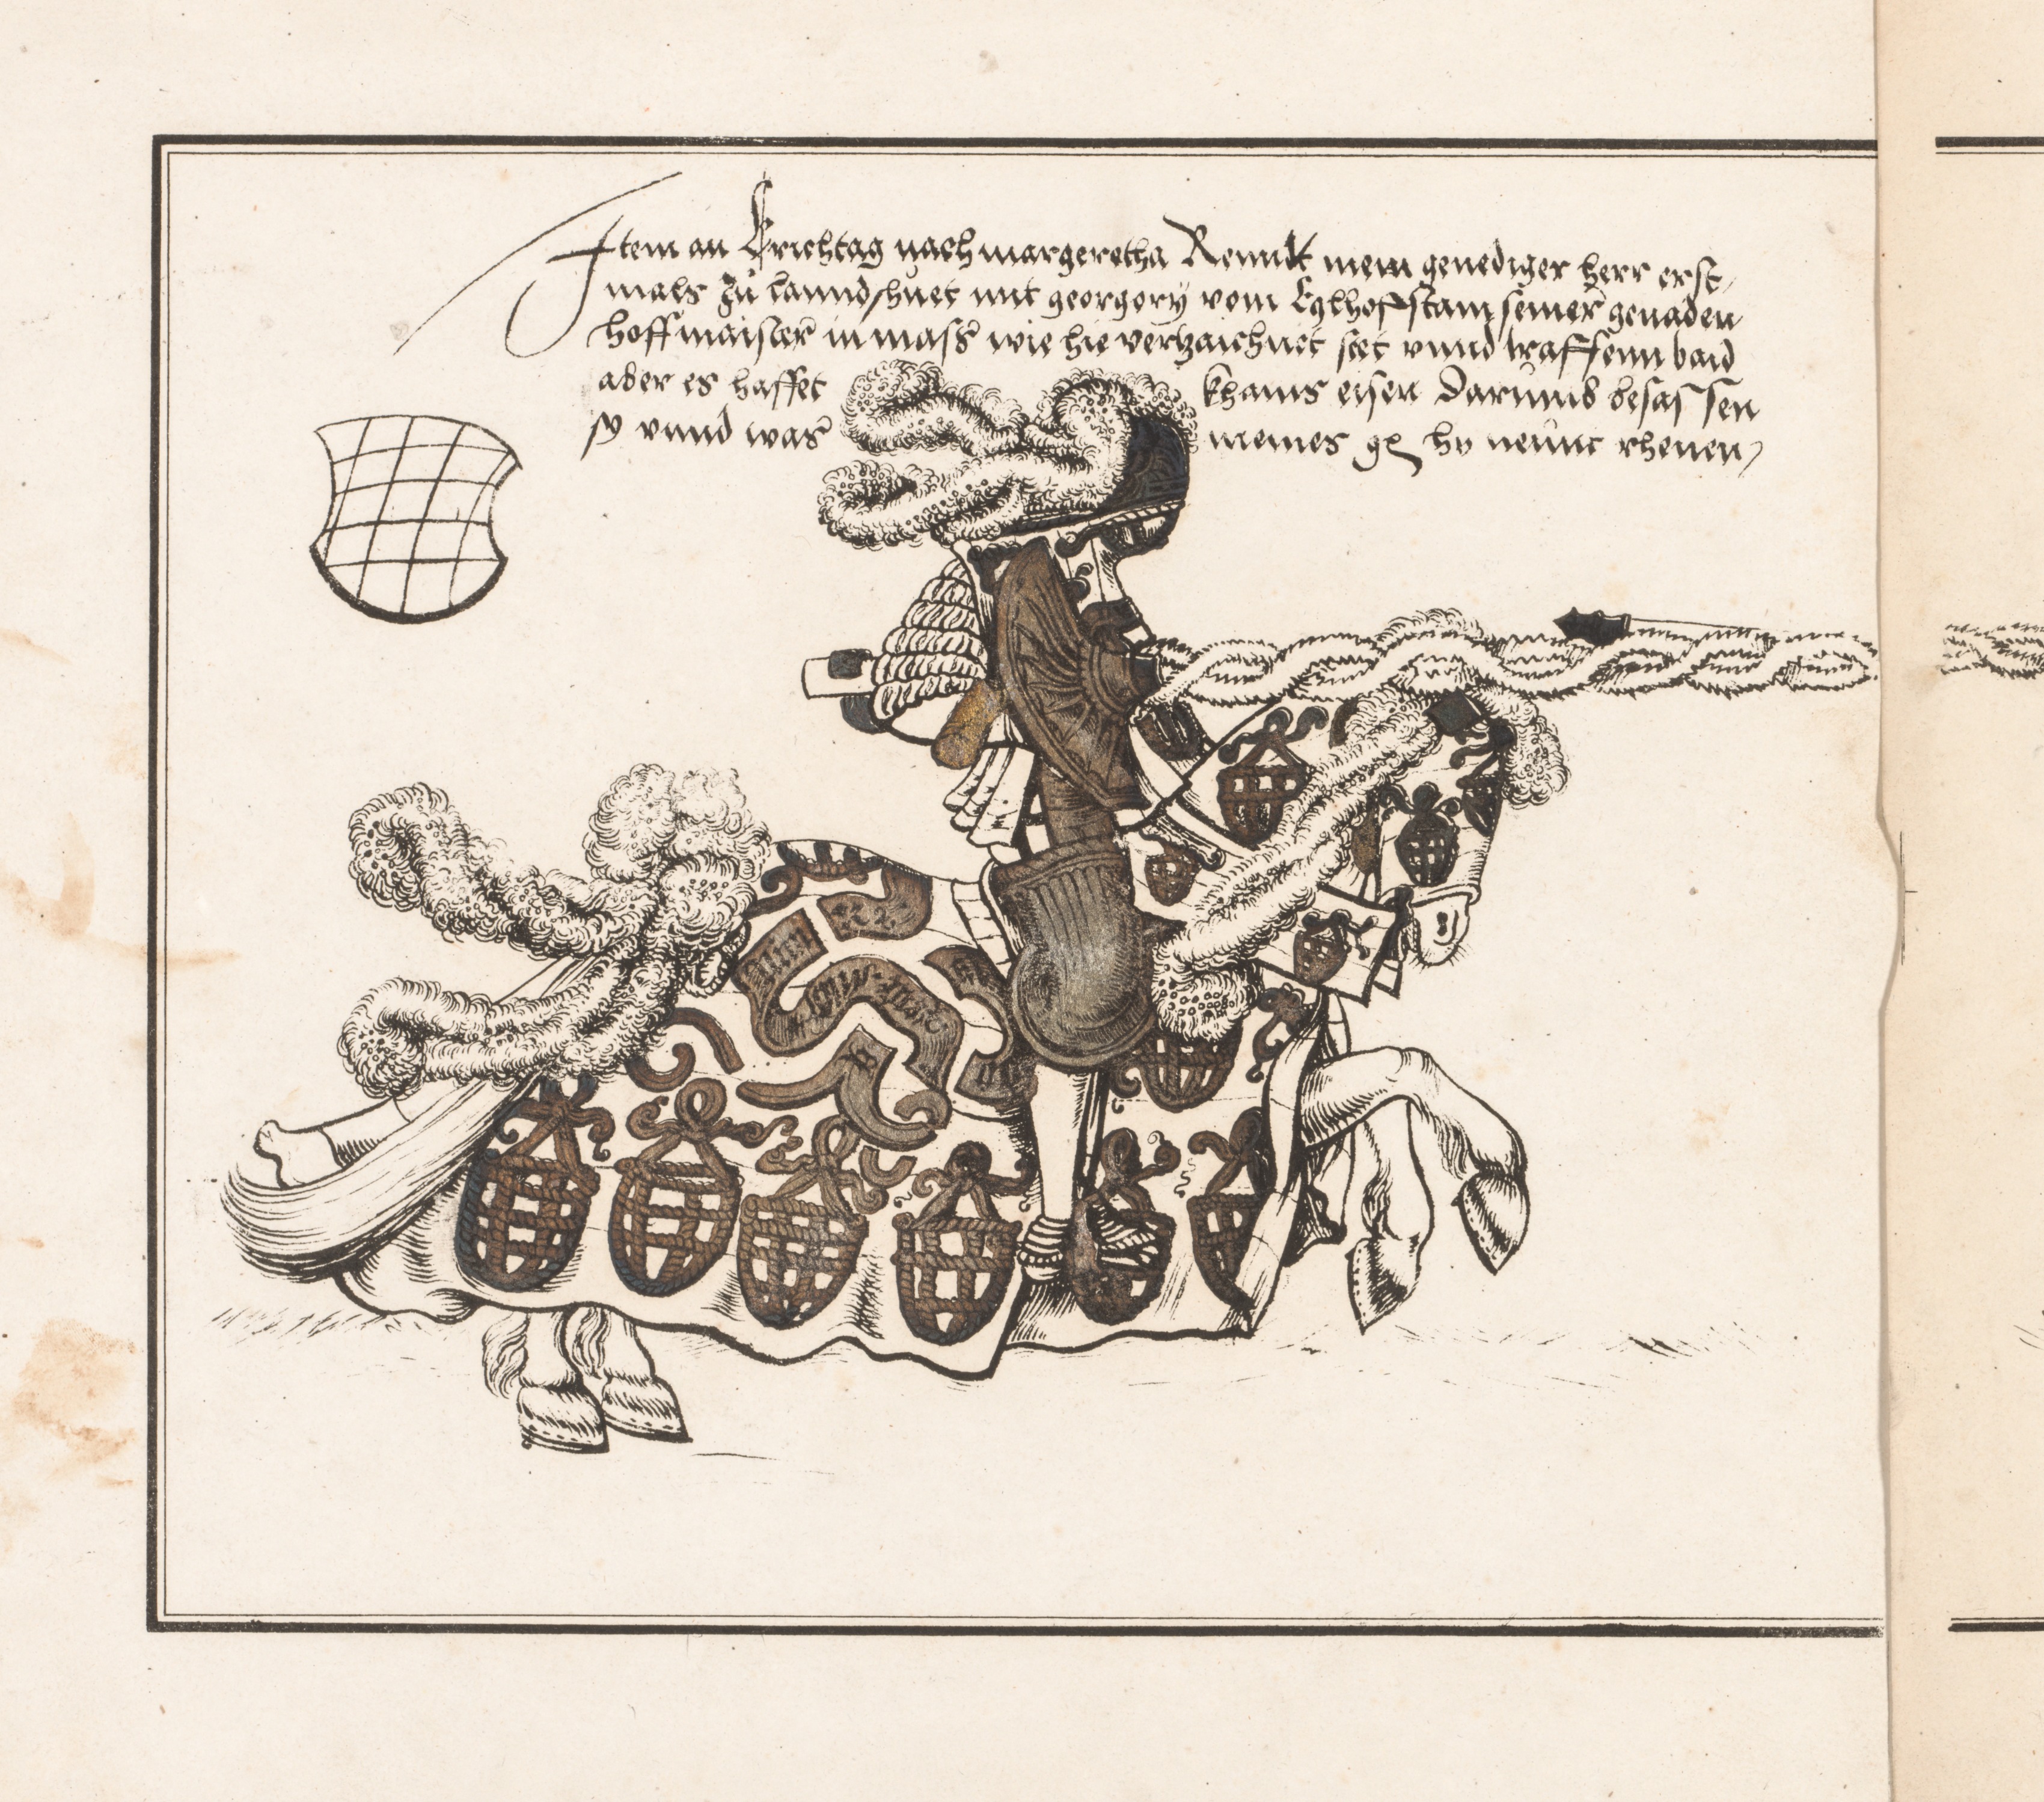 Item an Erichtag nach margeretha Rennt mein genediger herr erst,
mals zu lanndshuet mit georgory vom Eglhofstain seiner genaden
hoffmaister in mass wie hie vertzaichnet stet vnnd traffenn baid
ader es hafftet khains eisen darumb besassen
sy vnnd was meines g hn neunt rhenen,